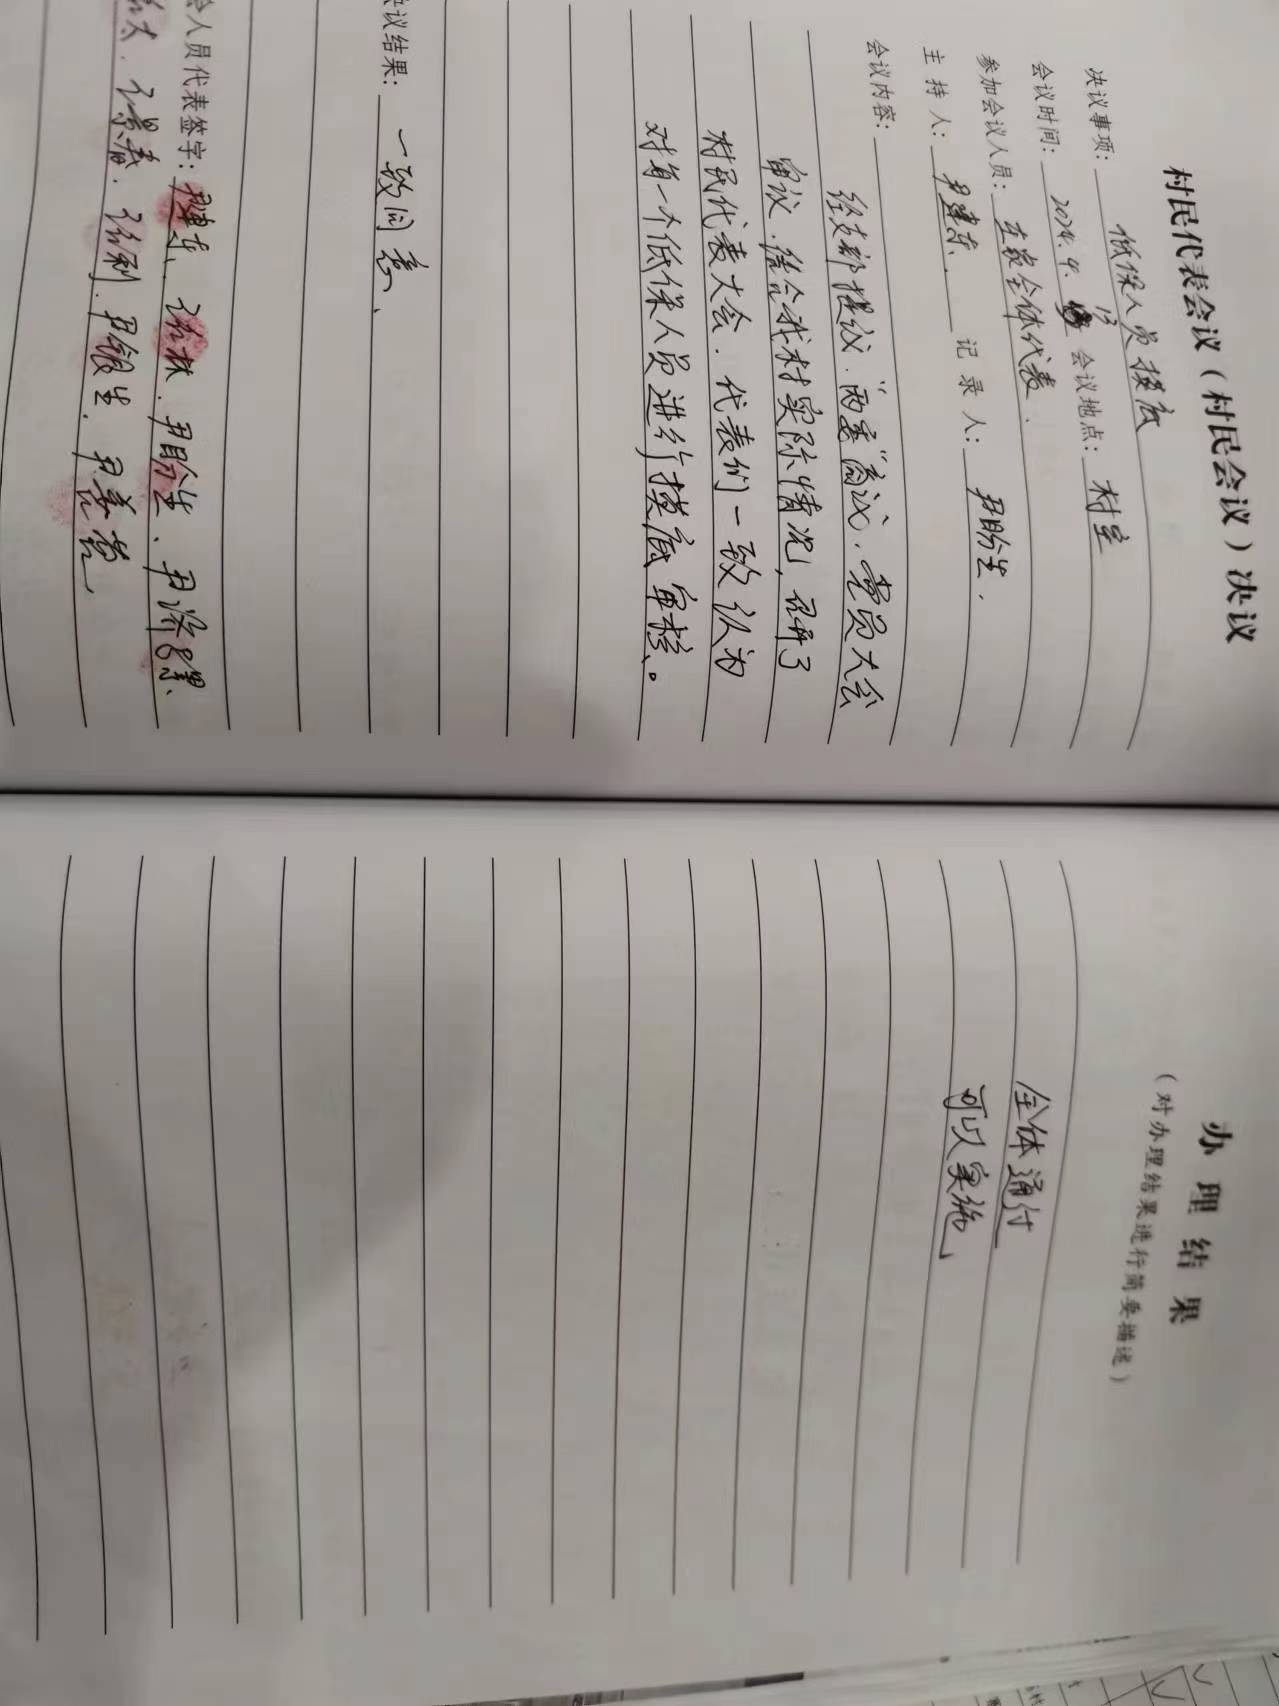 村民代表会议（村民会议）决议
决议事项： 低保人员摸底
会议时间： 2024.4.13 会议地点： 村室
参加会议人员： 在家全体代表.
主 持 人： 尹建东. 记 录 人： 尹盼生.
会议内容：
经支部提议."两委"商议.党员大会
审议.结合我村实际情况,召开了
村民代表大会.代表们一致认为
对每一个低保人员进行摸底审核。
决议结果： 一致同意、
会人员代表签字： 尹建东、 尹盼生、尹
尹银生.
办 理 结 果
（对办理结果进行简要描述）
全体通过
可以实施